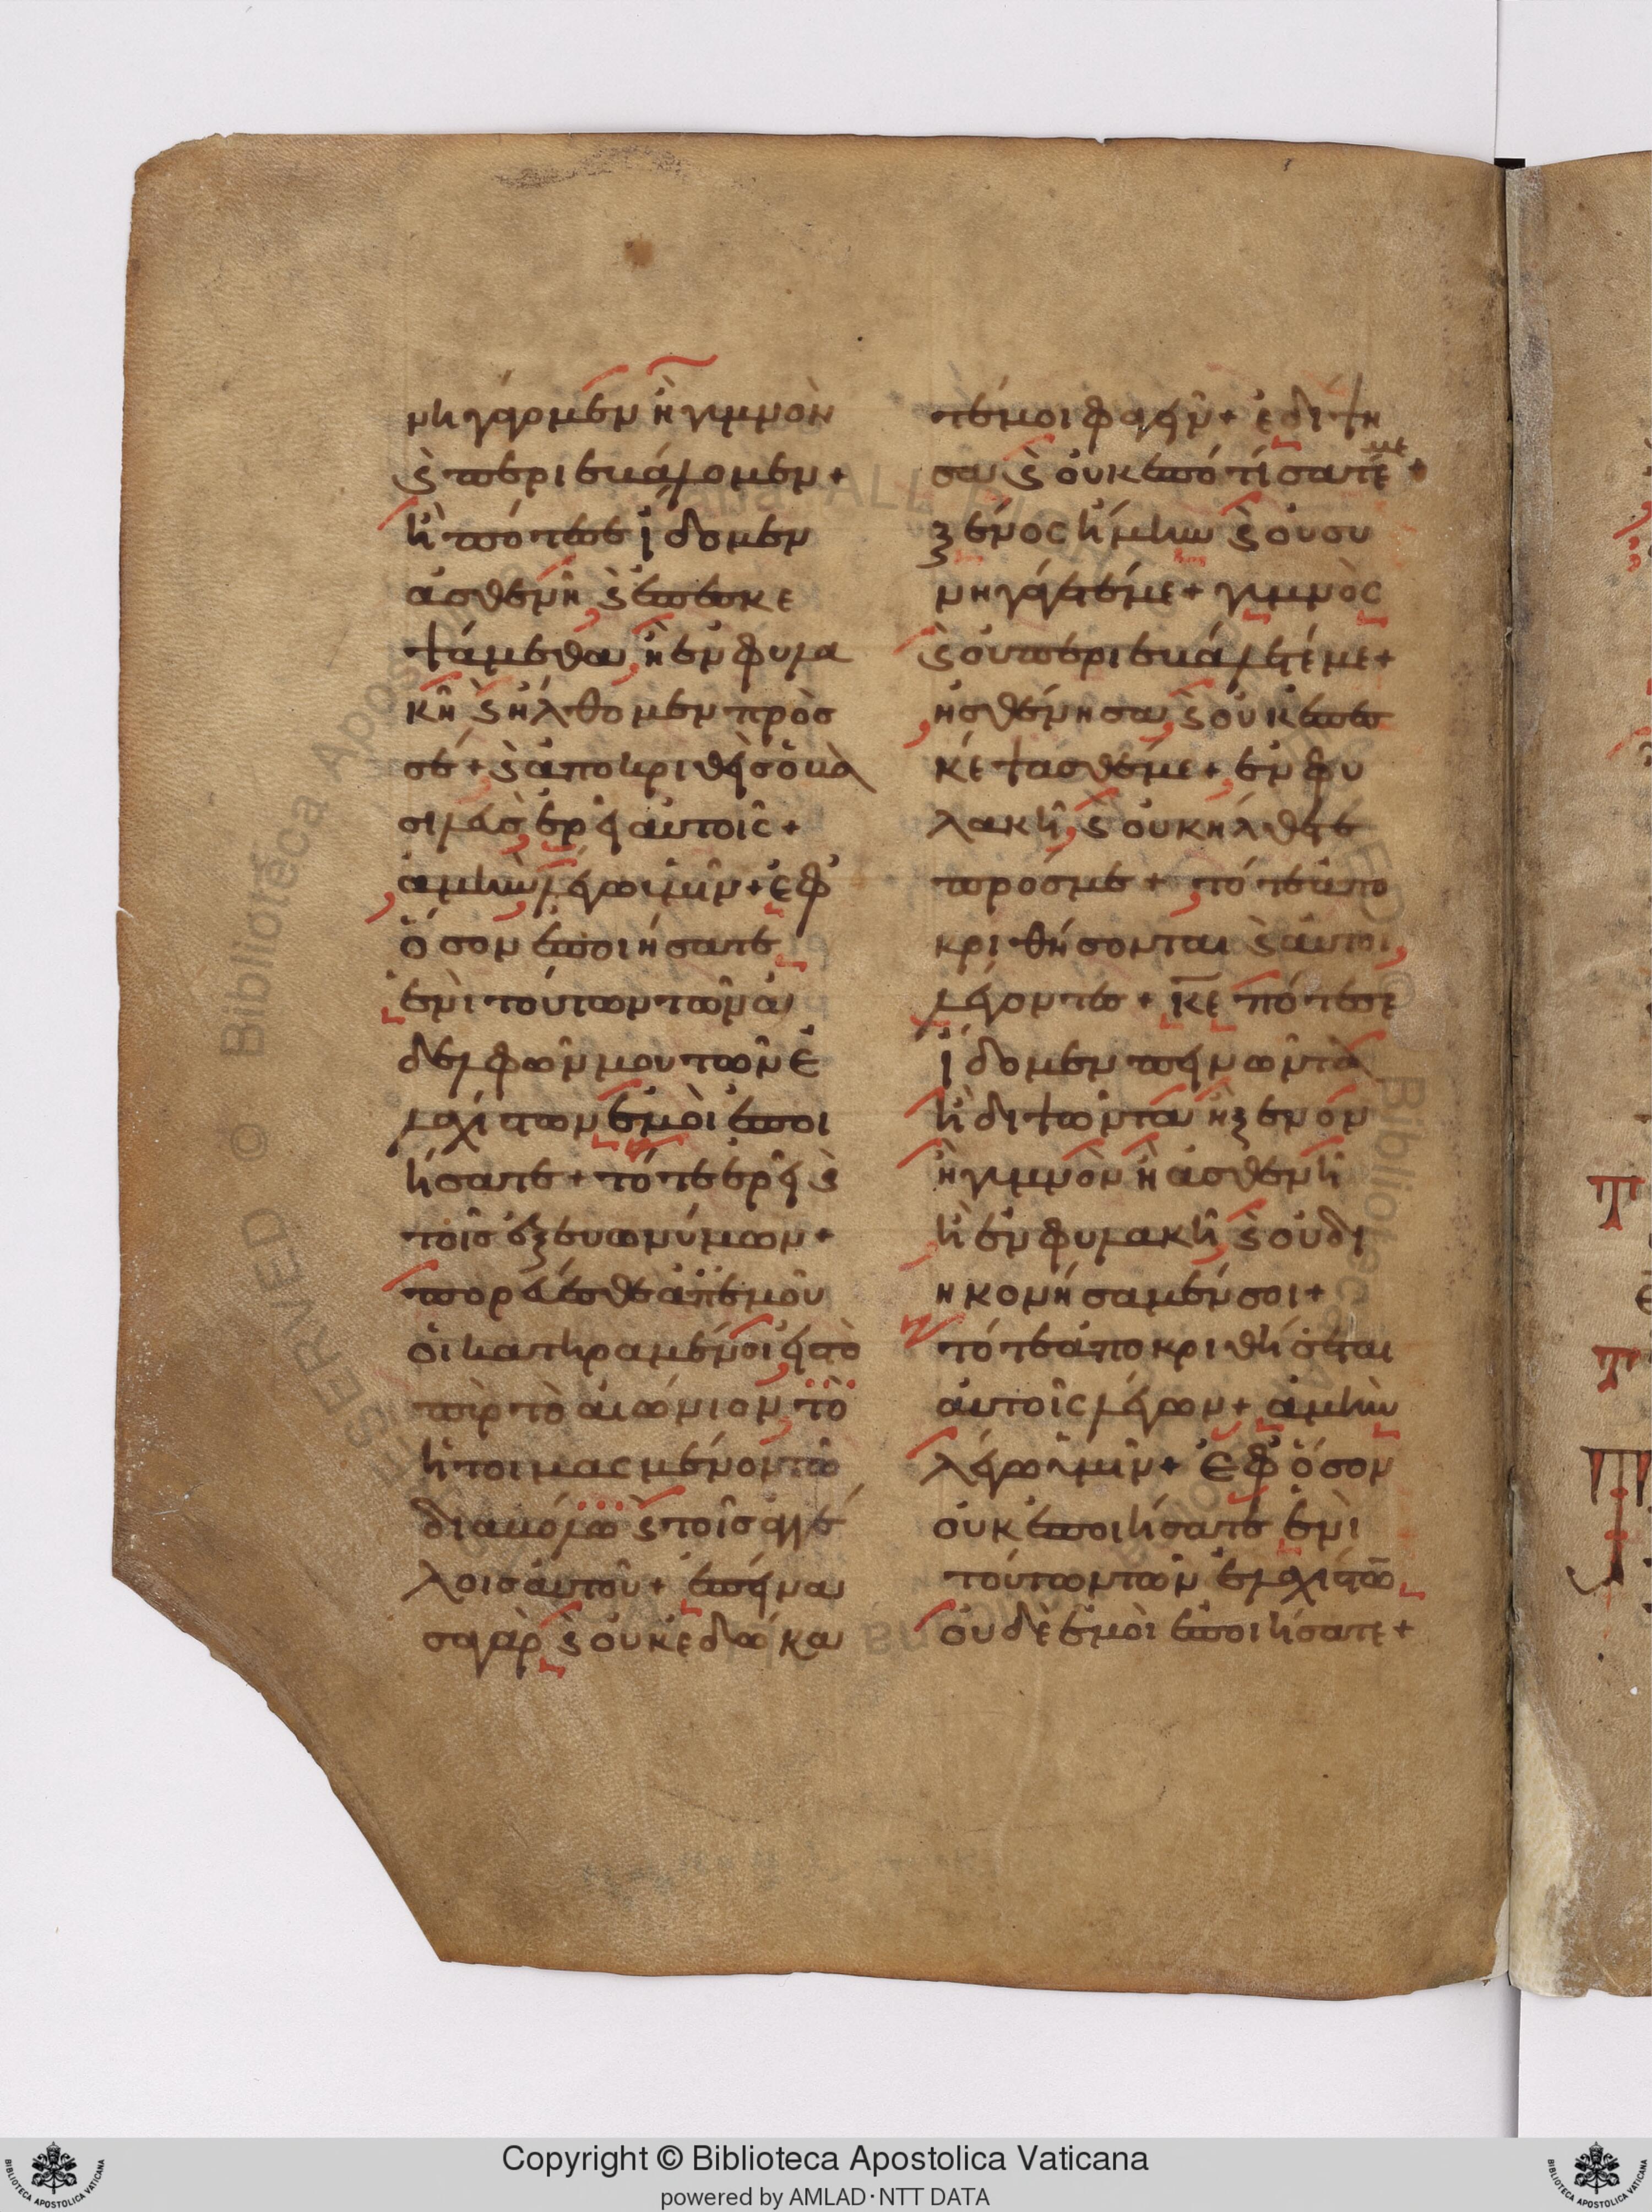 νηγάρομεν ἢ γυμνὸν
ϗ περιεβάλομεν +
ἢ πότεσε ἴδομεν
ἀσθενῆ ϗ ἐπεσκε
ψάμεθα ἢ ἐν φυλα
κῆ ϗ ἤλθομεν πρὸσ
σέ + ϗ ἀποκριθεὶσ ὁ βα
σιλεὺσ ἐρεῖ αὐτοῖς +
ἀμὴν λέγω ὑμῖν + ἐφ
ὅσον ἐποιήσατε
ἑνὶ τούτων τῶν ἀ
δελφῶν μου τῶν ἐ
λαχίστων ἐμοὶ ἐποι
ήσατε + τότε ἐρεῖ ϗ
τοῖσ ἐξ εὐωνύμων +
πορεύεσθε ἀπ ἐμοῦ
οἱ κατηραμένοι εἰς τὸ
πῦρ τὸ αἰώνιον τὸ
ἡτοιμασμένον τῶ
διαβόλω ϗ τοῖσ ἀγγέ
λοισ αὐτοῦ + ἐπείνα
σα γὰρ ϗ οὐκ ἐδώκα
τέ μοι φαγεῖν + ἐδίψη
σα ϗ οὐκ ἐποτίσατέ με +
ξένος ἤμην ϗ οὐ συ
νηγάγετέ με + γυμνὸς
ϗ οὐ περιεβάλετέ με +
ἠσθένησα ϗ οὐκ ἐπε
σκέψασθέ με + ἐν φυ
λακῆ ϗ οὐκ ἤλθετε
πρόσ με + τότε ἀπο
κριθήσονται ϗ αὐτοὶ
λέγοντες + κε πότε σε
ἴδομεν πεινῶντα
ἢ διψῶντα ἢ ξένον
ἢ γυμνὸν ἢ ἀσθενῆ
ἢ ἐν φυλακῆ ϗ οὐ δι
ηκονήσαμέν σοι +
τότε ἀποκριθήσεται
αὐτοῖς λέγων + ἀμὴν
λέγω ὑμῖν + ἐφ ὅσον
οὐκ ἐποιήσατε ἑνὶ
τούτων τῶν ἐλαχίστω
οὐδὲ ἐμοὶ ἐποιήσατε +
Copyright © Biblioteca Apostolica Vaticana
powered by AMLAD·NTT DATA